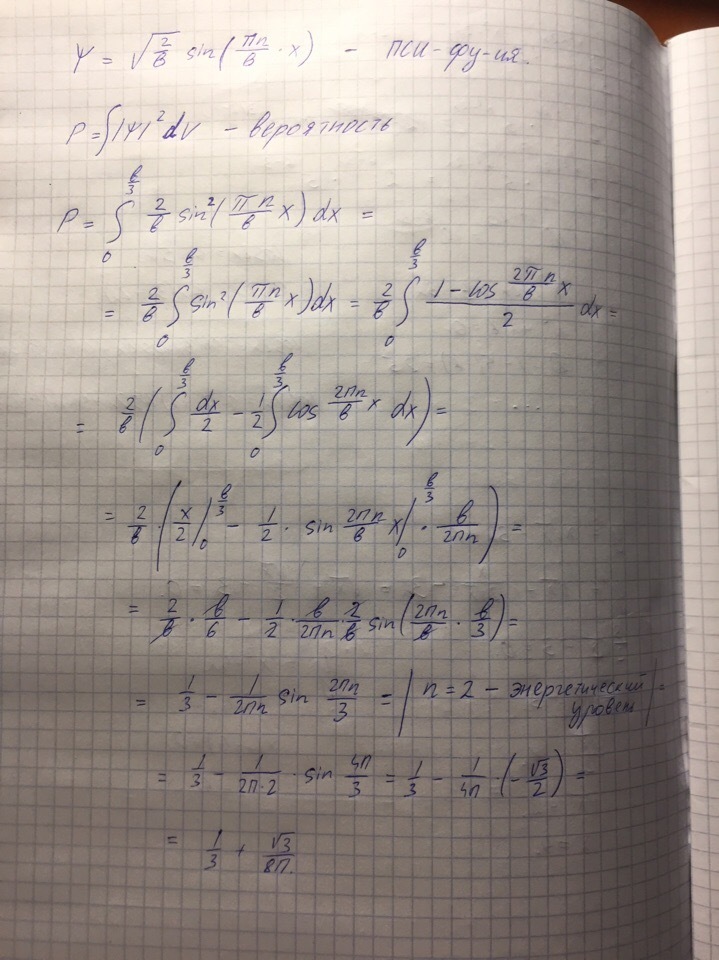 Ψ = √(2/в) sin(πn/в · x) - пси-фу-ия.
P = ∫|Ψ|² dV - вероятность
P = ∫₀^(в/3) 2/в sin²(πn/в x) dx =
= 2/в ∫₀^(в/3) sin²(πn/в x) dx = 2/в ∫₀^(в/3) (1 - cos 2πn/в x)/2 dx =
= 2/в (∫₀^(в/3) dx/2 - 1/2 ∫₀^(в/3) cos 2πn/в x dx) =
= 2/в · (x/2 |₀^(в/3) - 1/2 · sin 2πn/в x |₀^(в/3) · в/2πn) =
= 2/в · в/6 - 1/2 · в/2πn · 2/в sin(2πn/в · в/3) =
= 1/3 - 1/2πn sin 2πn/3 = | n = 2 - энергетический уровень | =
= 1/3 - 1/2π·2 · sin 4π/3 = 1/3 - 1/4π · (-√3/2) =
= 1/3 + √3/8π.